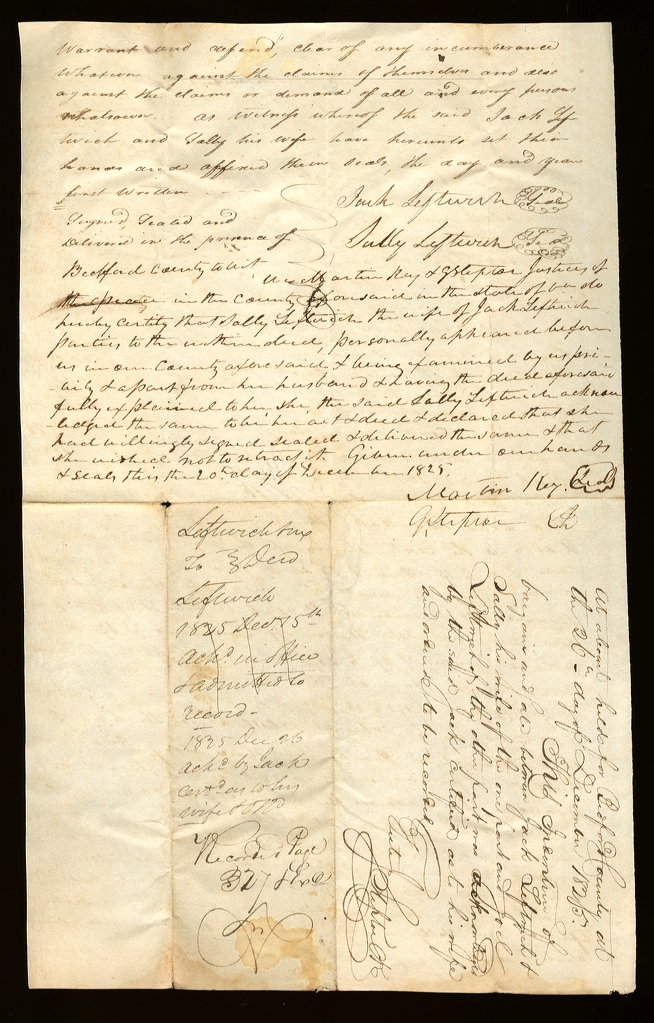 Warrant and defend, clear of any incumberance
Whatever against the claims of themselves and also
against the claims or demand of all and every persons
Whatsoever. as Witness whereof the said Jack Lef
twich and Sally his wife have hereunto set their
hands and affixed their seals, the day and year
first Written
Jack Leftwich Seal
Signed, Sealed and
Sally Leftwich Seal
Delivered in the presence of
Bedford County to wit
We Martin Key & G Stepton Justices of
the peace in the County aforesaid in the State of Va do
hereby certify that Sally Leftwich the wife of Jack Leftwich
parties to the within deed, personally appeared before
us in our County aforesaid & being examined by us pri-
-vily & apart from her husband & having the deed aforesaid
fully explained to her she, the said Sally Leftwich acknow
-ledged the same to be her act & deed & declared that she
had willingly signed sealed & delivered the same & that
she wished not to retract it. Given under our hands
& seals this the 20th day of December 1825.
Martin Key. Seal
Leftwich & ux
To } Deed
Leftwich
1825 Decr. 15th
Ackd. in office
& admitted to
record-
1825 Dec 26
ackd by Jack
as to his
wife &
Recorded Page
327
At a Court held for Bedford County at
the 26th day of December 1825.
This Indenture of
bargain and sale between Jack Leftwich &
Sally his wife of the one part and Joel
Leftwich of the other part was acknowledged
by the said Jack as his act his wife
and ordered to be recorded
Teste